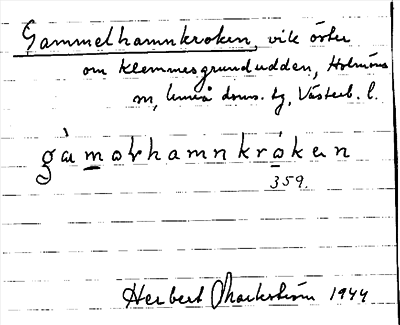 Gammelhamnkroken, vik öster
om Klemmesgrundudden, Holmöns
sn, Umeå doms. tg, Västerb. l.
gàmalhamnkrókan
359.
Herbert Markström 1944